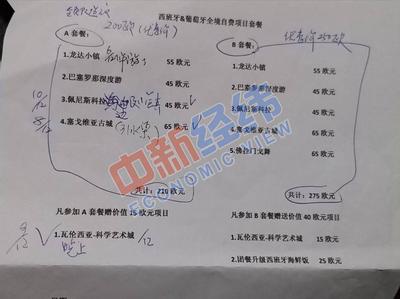 西班牙&葡萄牙全境自费项目套餐
200欧(优惠价)
优惠价250欧
A 套餐:
B 套餐:
1.龙达小镇 55 欧元
龙达小镇 55 欧元
2.巴塞罗那深度游 45 欧元
2.巴塞罗那深度游 45 欧元
3.佩尼斯科拉 45 欧元
3.佩尼斯科拉 45 欧元
4.塞戈维亚古城 65 欧元
4.塞戈维亚古城 65 欧元
5.佛拉门戈舞 65 欧元
共计:210 欧元
共计:275 欧元
凡参加 A 套餐赠价值 15 欧元项目
凡参加 B 套餐赠送价值 40 欧元项目
1.瓦伦西亚-科学艺术城
1.瓦伦西亚-科学艺术城 15 欧元
晚上
2.诺餐升级西班牙海鲜饭 25 欧元
中新经纬
ECONOMIC VIEW